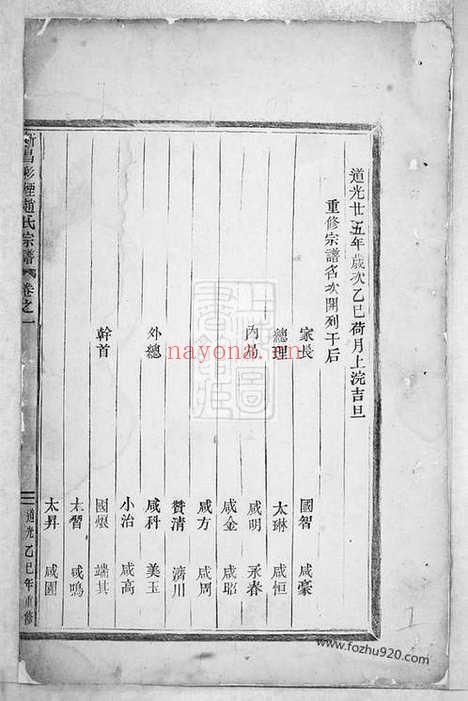 道光廿五年歲次乙巳荷月上浣吉旦
重修宗譜名次開列于后
家長 國智 咸豪
總理 太琳 咸恒
咸明 承春
咸金 咸昭
咸方 咸周
贊清 濟川
外總 咸科 美玉
小治 咸高
幹首 國煨 端其
太習 咸鳴
太昇 咸圓
新昌彩煙趙氏宗譜 卷之一
道光乙巳年重修
nayona.cn
www.fozhu920.com